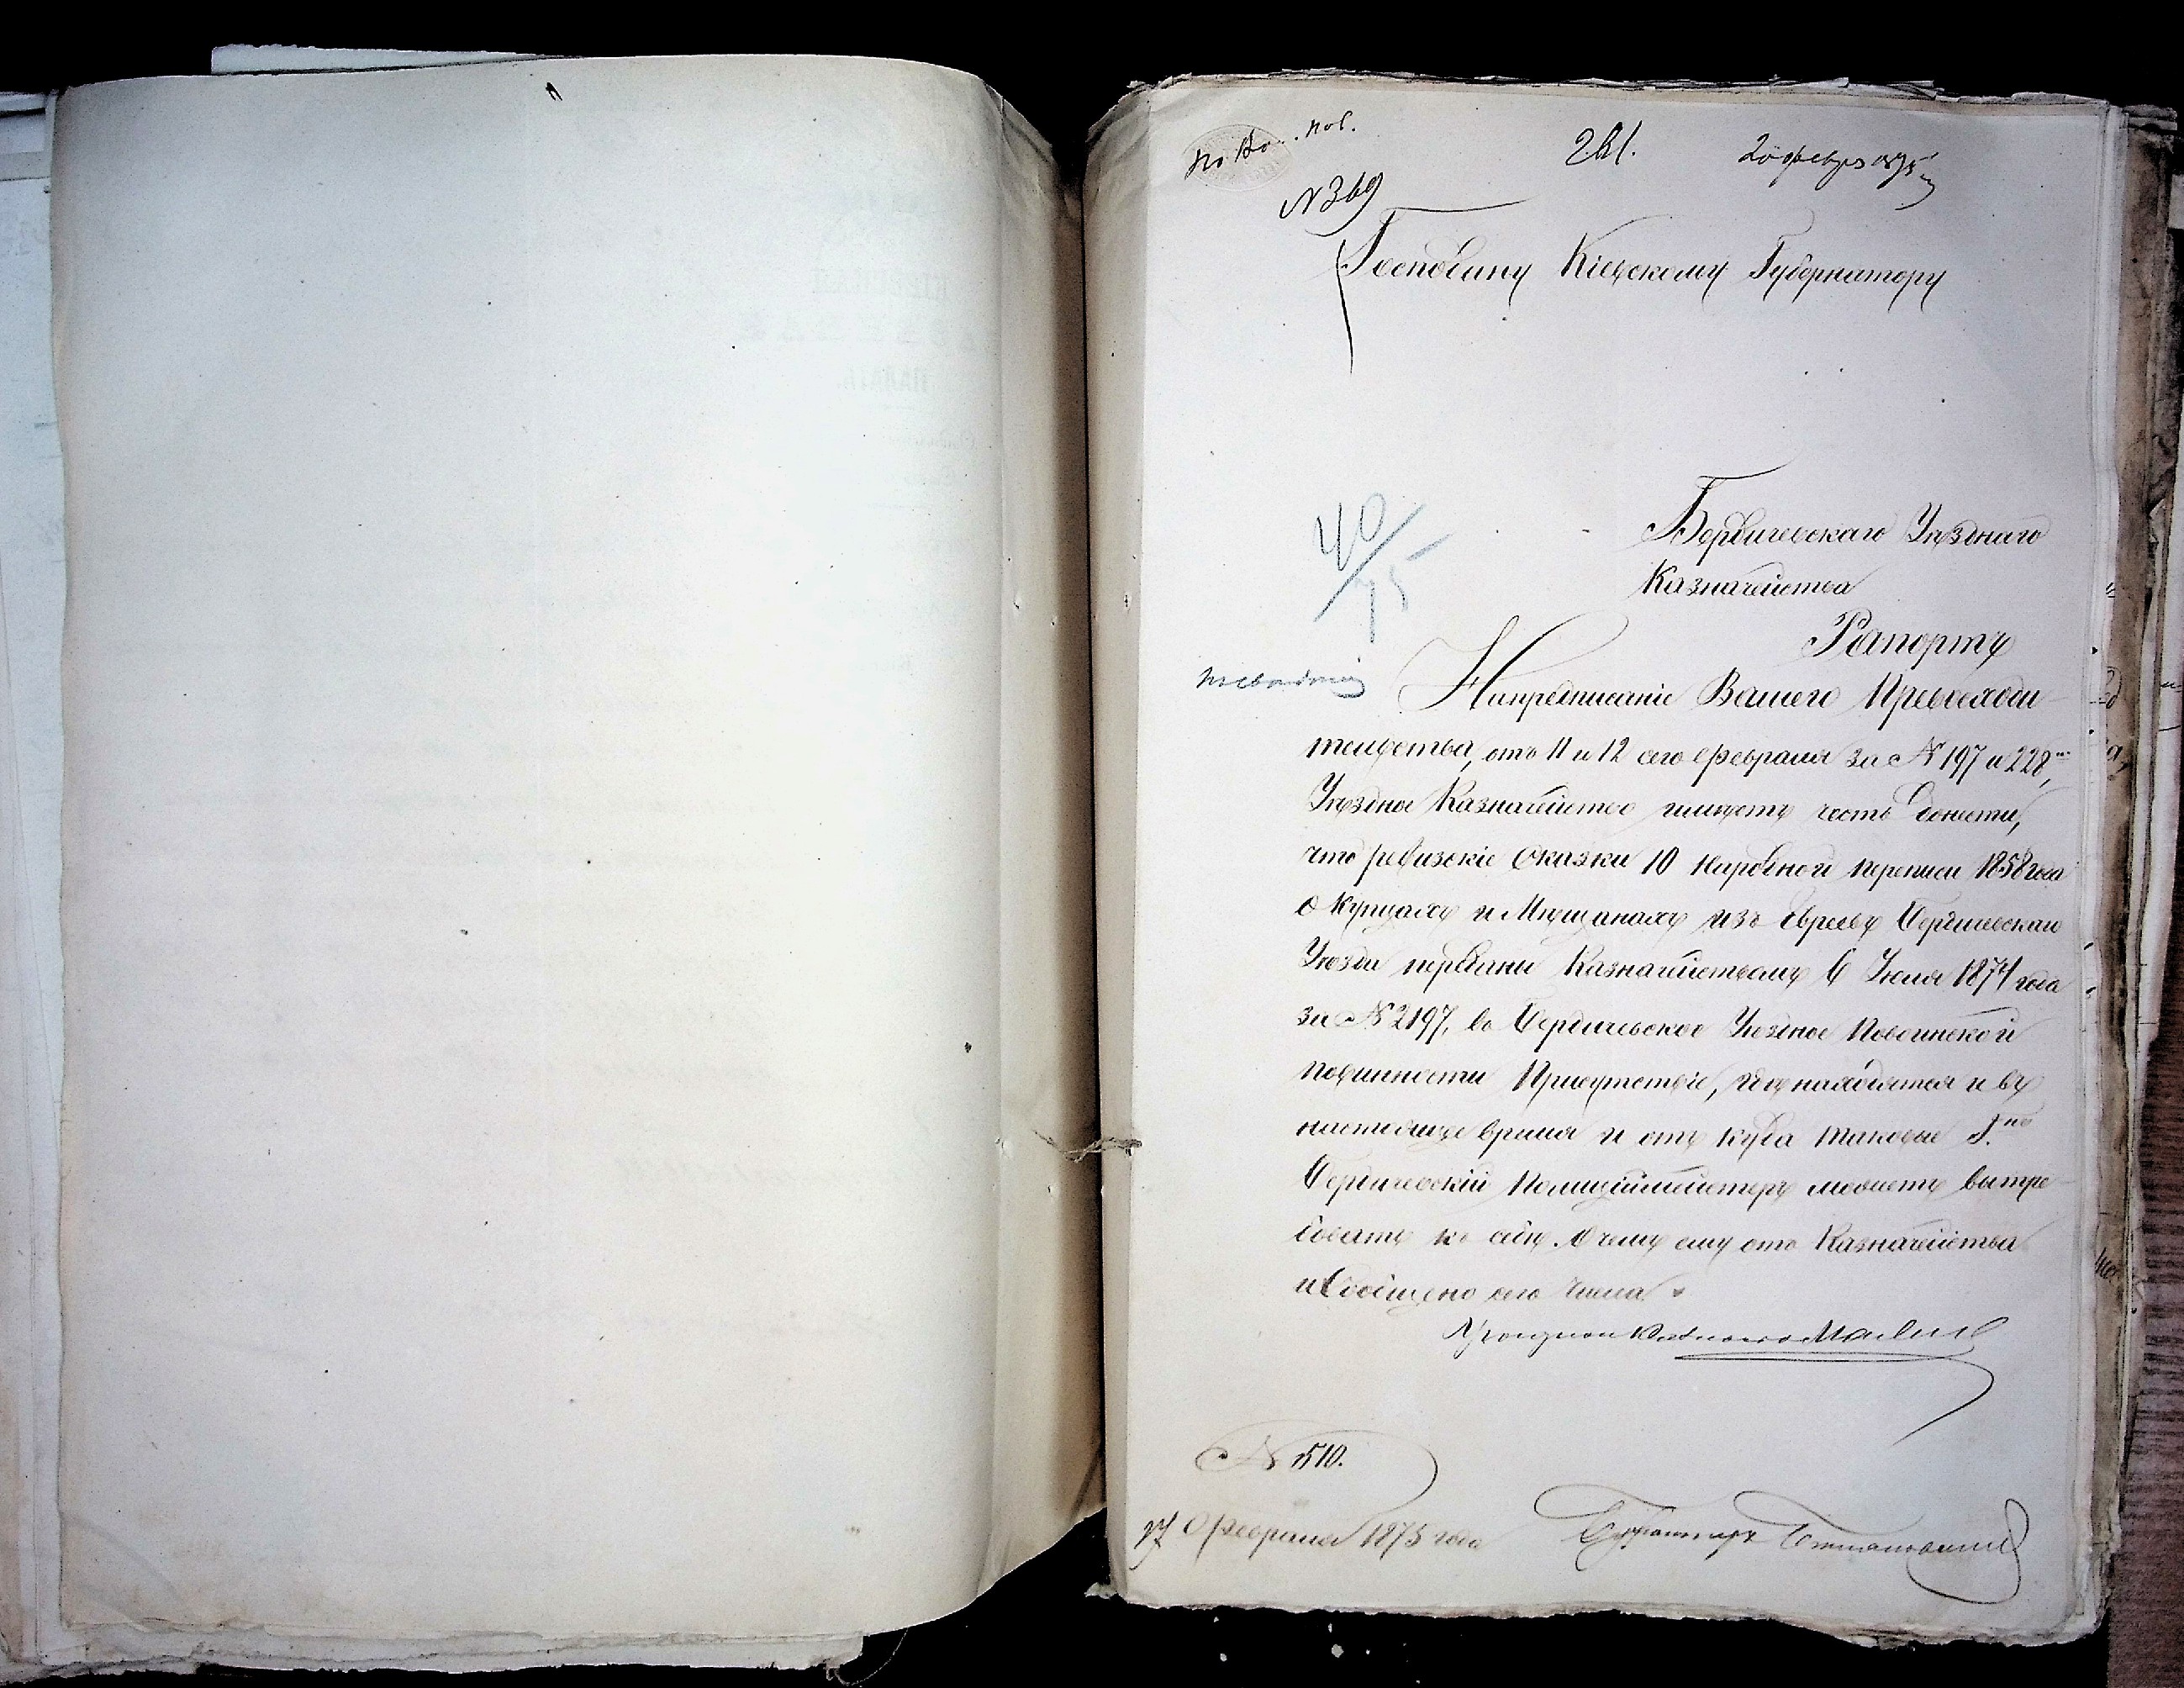 По Во.. пов.
281. 20 февр 1875
№ 369
Господину Кіевскому Губернатору
40/75
Бердичевскаго Уѣзднаго
Казначейства
Рапортъ
На предписаніе Вашего Превосходи
тельства, отъ 11 и 12 сего февраля за № 197 и 228,
Уѣздное Казначейство имѣетъ честь донести,
что ревизскіе сказки 10 народной переписи 1858 года
о купцахъ и мѣщанахъ изъ евреевъ Бердичевскаго
Уѣзда переданы Казначействомъ 6 Іюля 1874 года
за № 2197, во Бердичевское Уѣздное По воинской
повинности Присутствіе, гдѣ находятся и въ
настоящее время и отъ куда таковые Г.нъ
Бердичевскій Полиціймейстеръ можетъ вытре
бовать къ себѣ. О чемъ ему отъ Казначейства
и сообщено сего числа.
№ 510.
17 февраля 1875 года Бухгалтеръ